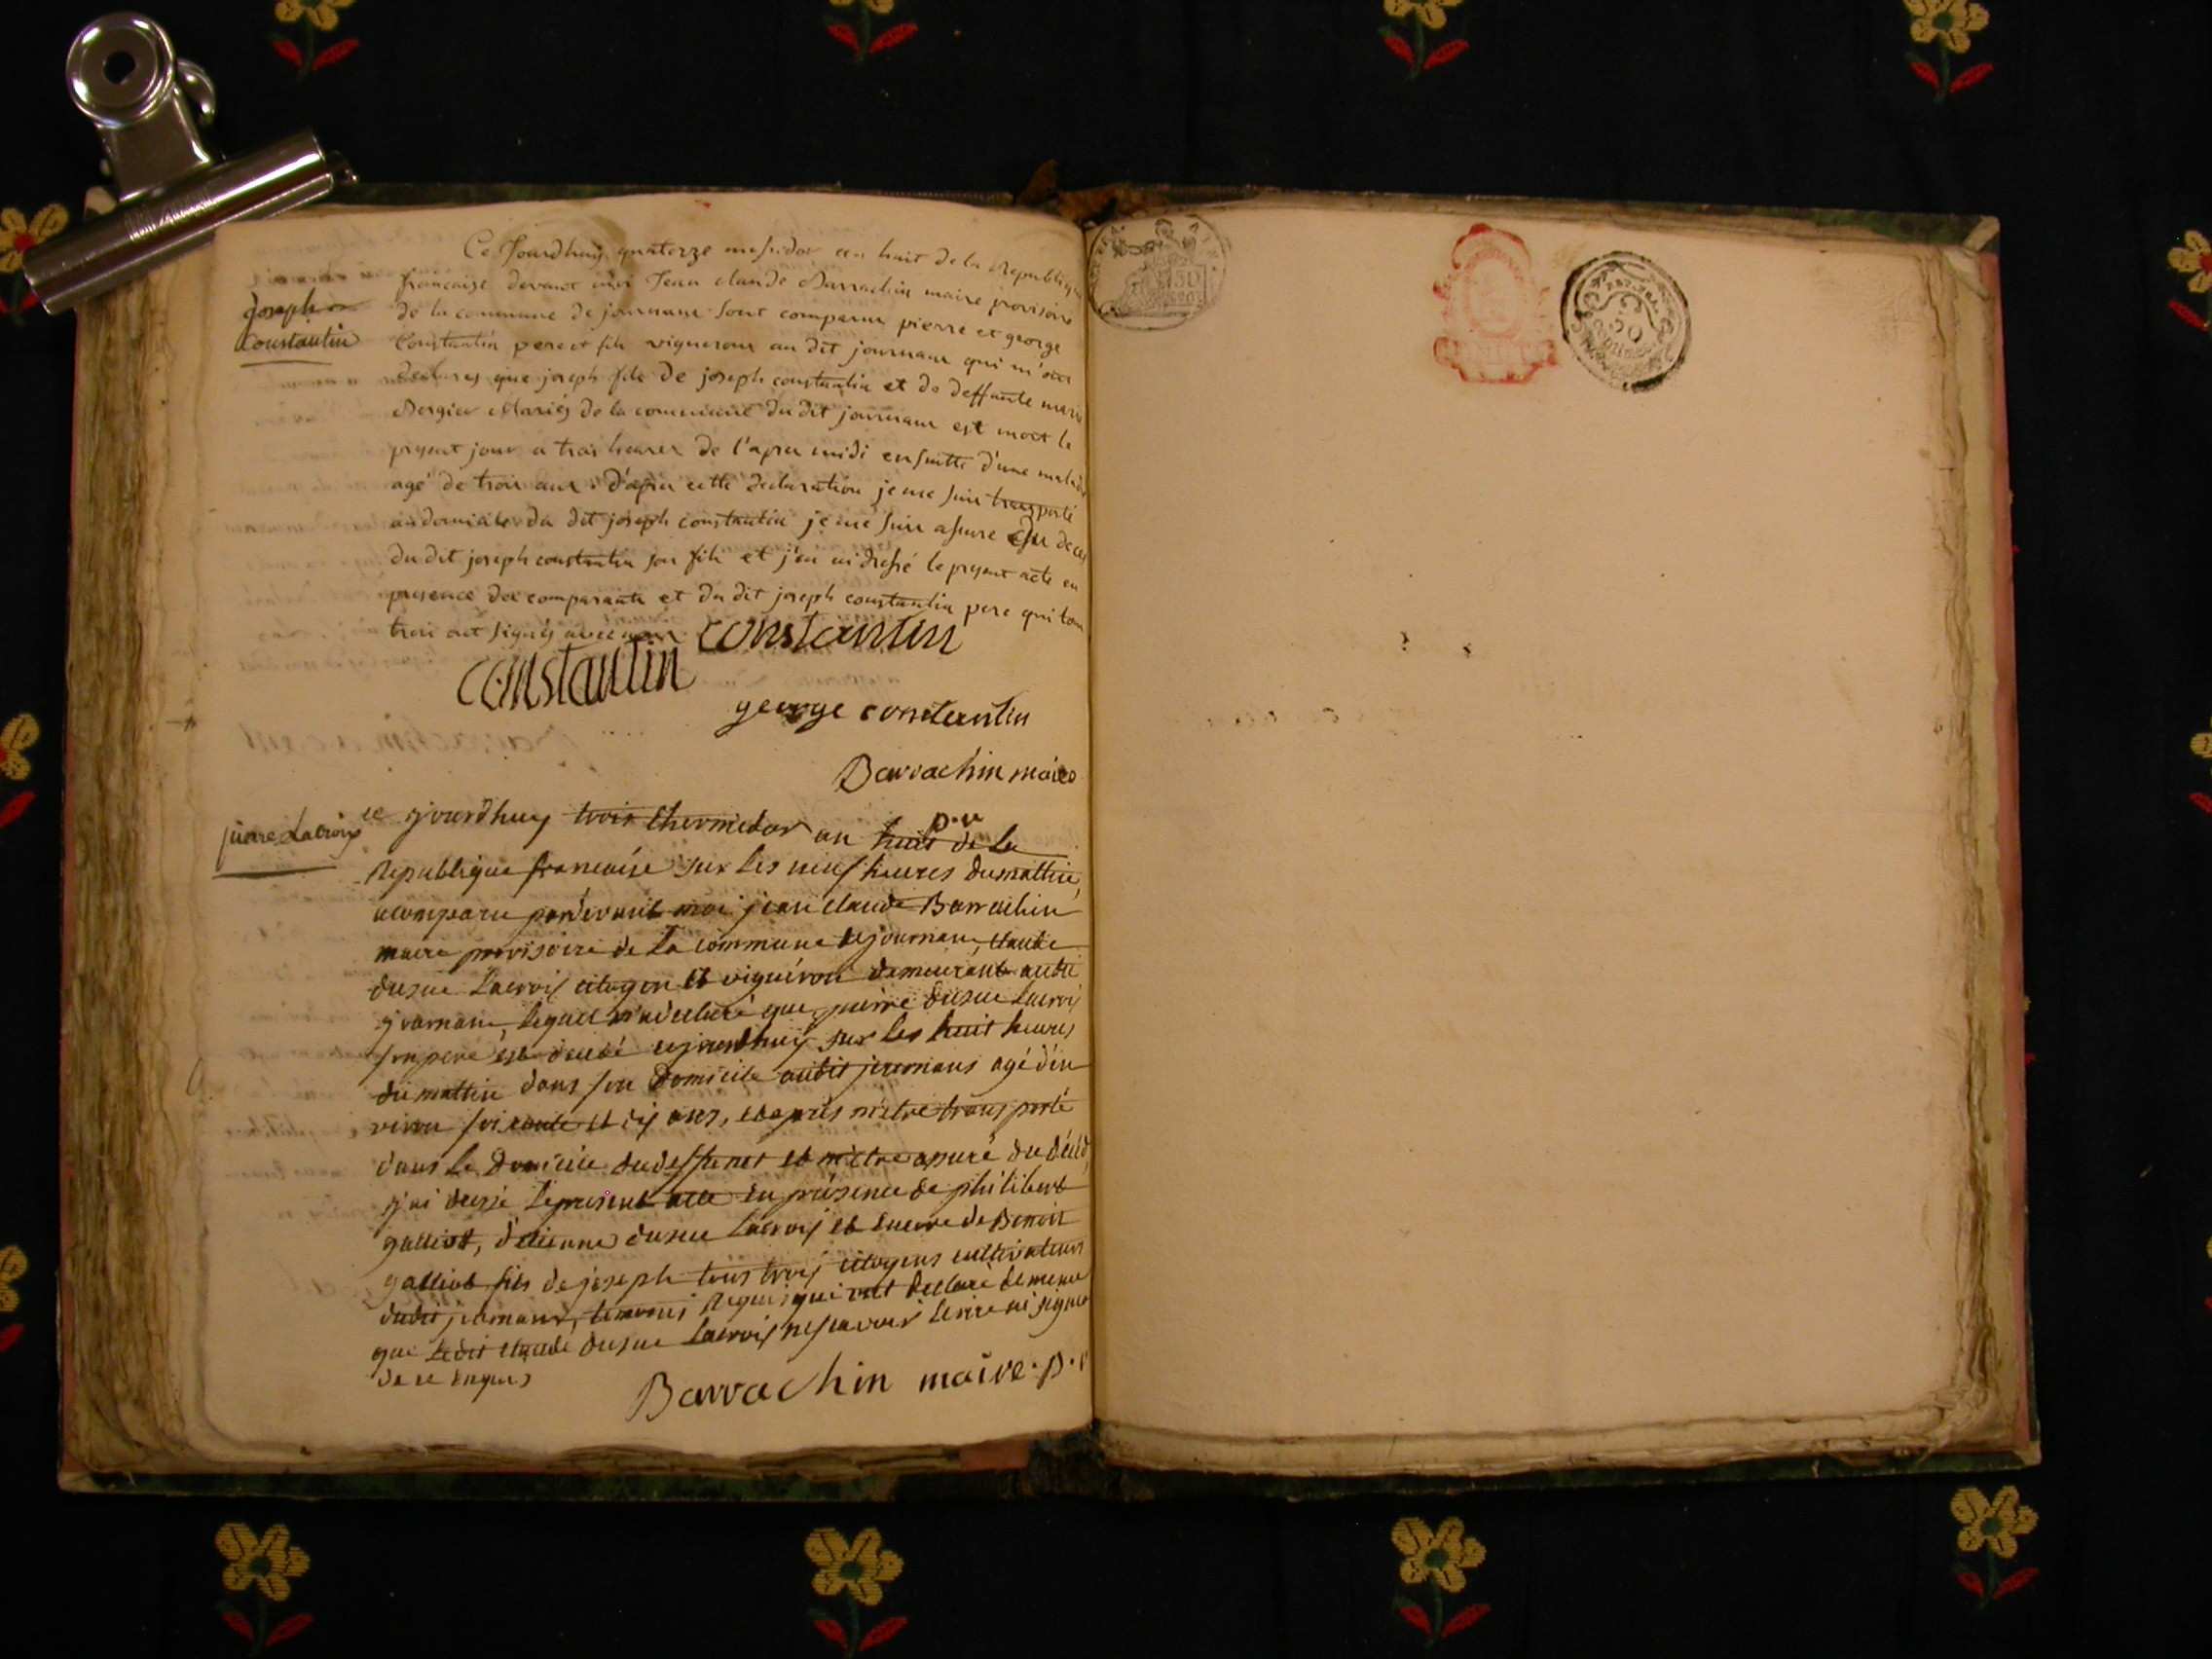 Ce Jourdhuy quatorze messidor an huit de la Republique
francaise devant moi Jean claude Barrachin maire provisoire
de la commune de journans sont comparus pierre et george
Constantin pere et fils vignerons au dit journans qui m'ont
declares que joseph fils de joseph constantin et de deffunte marie
Bergier Mariés de la commune du dit journans est mort le
present jour a trois heures de l'apres midi ensuitte d'une maladie
agé de trois ans. d'apres cette declaration je me suis transporté
au domicile du dit joseph constantin je me suis assure du deces
du dit joseph constantin son fils et j'en ai dressé le present acte en
presence des comparants et du dit joseph constantin pere qui tous
trois ont signés avec moi
joseph
Constantin
constantin
constantin
george constantin
Barrachin maire
p.re
pierre Lacroix
ce jourdhuy trois thermidor an huit de la
Republique francaise sur les neuf heures du mattin,
a comparu pardevant moi jean claude Barrachin
maire provisoire de la commune de journans, claude
dusue Lacroix citoyen et vigneron demeurant audit
journans, lequel m'a declaré que pierre dusue Lacroix
son pere est decedé cejourdhuy sur les huit heures
du mattin dans son domicile audit journans agé d'en
viron soixante et dix ans, et apres m'etre transporté
dans le domicile du deffunct et m'etre assuré du décéd,
j'ai dressé le present acte en présence de philibert
galliot, d'etienne dusue Lacroix et encore de Benoit
galliot fils de joseph tous trois citoyens cultivateurs
dudit journans, temoins requis qui ont declaré de meme
que ledit claude dusue Lacroix ne scavoir ecrire ni signer
de ce enquis
Barrachin maire . p . r